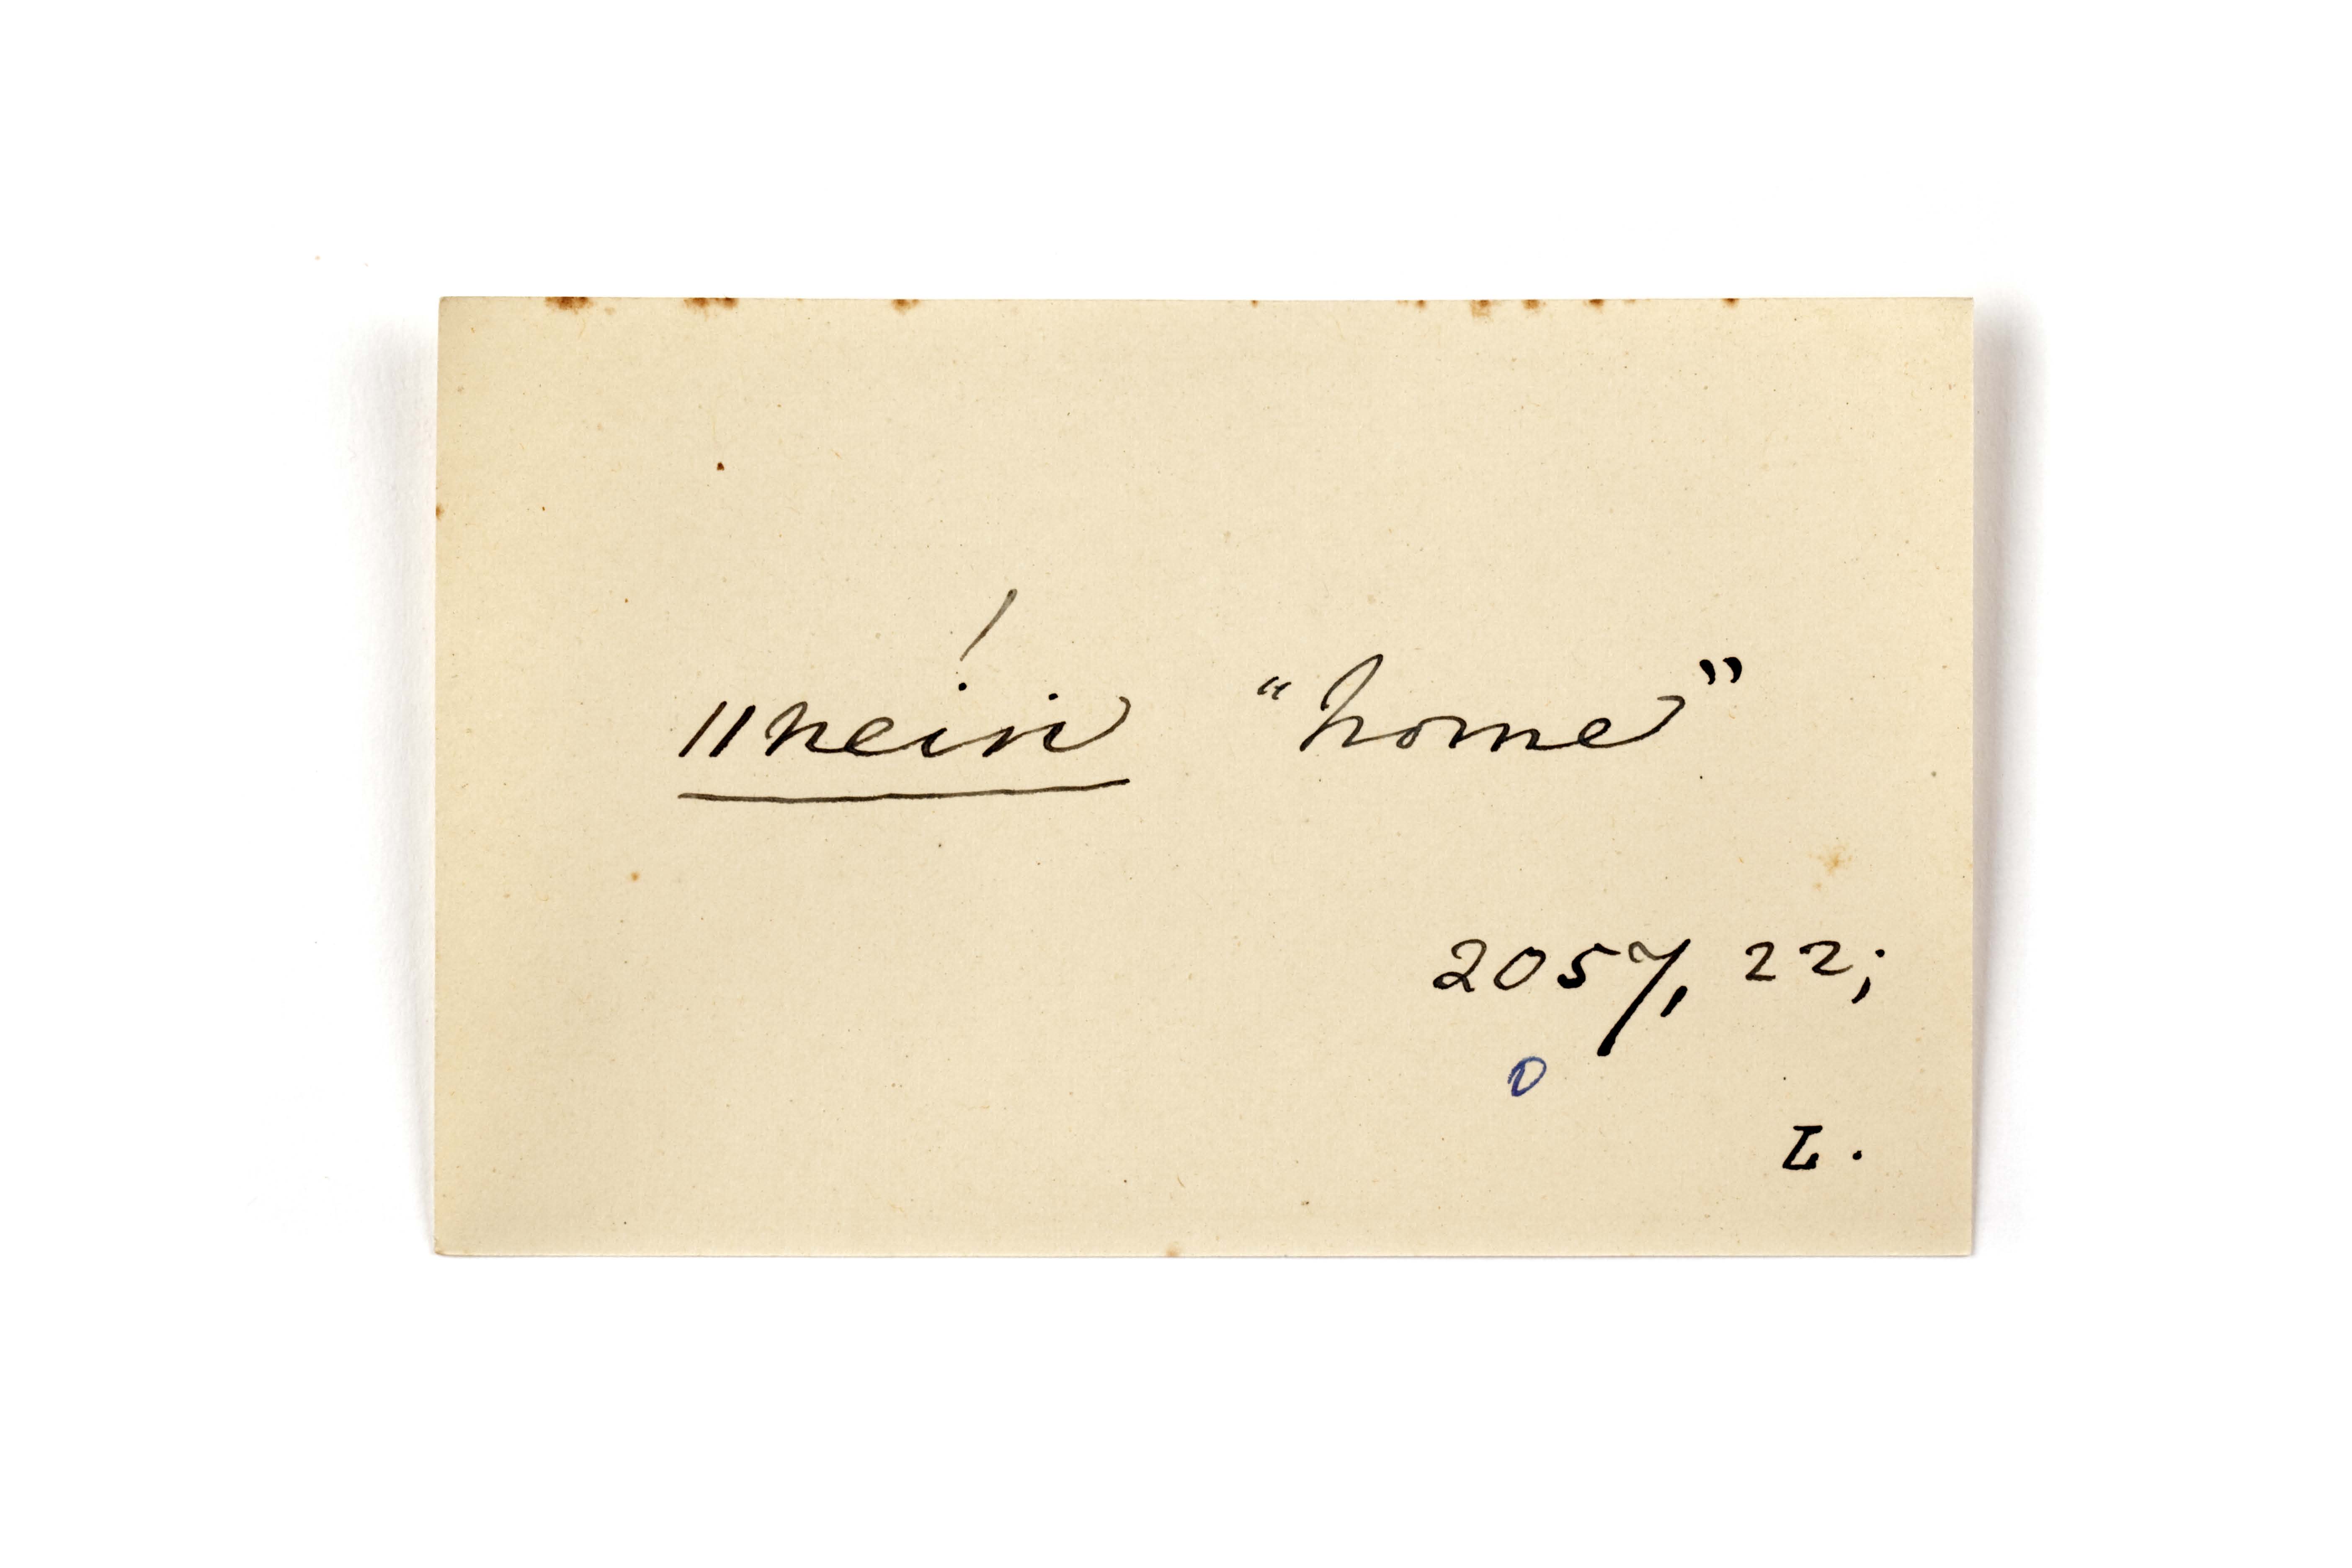 ǁneiṅ "home"
2057, 22;
D
L.